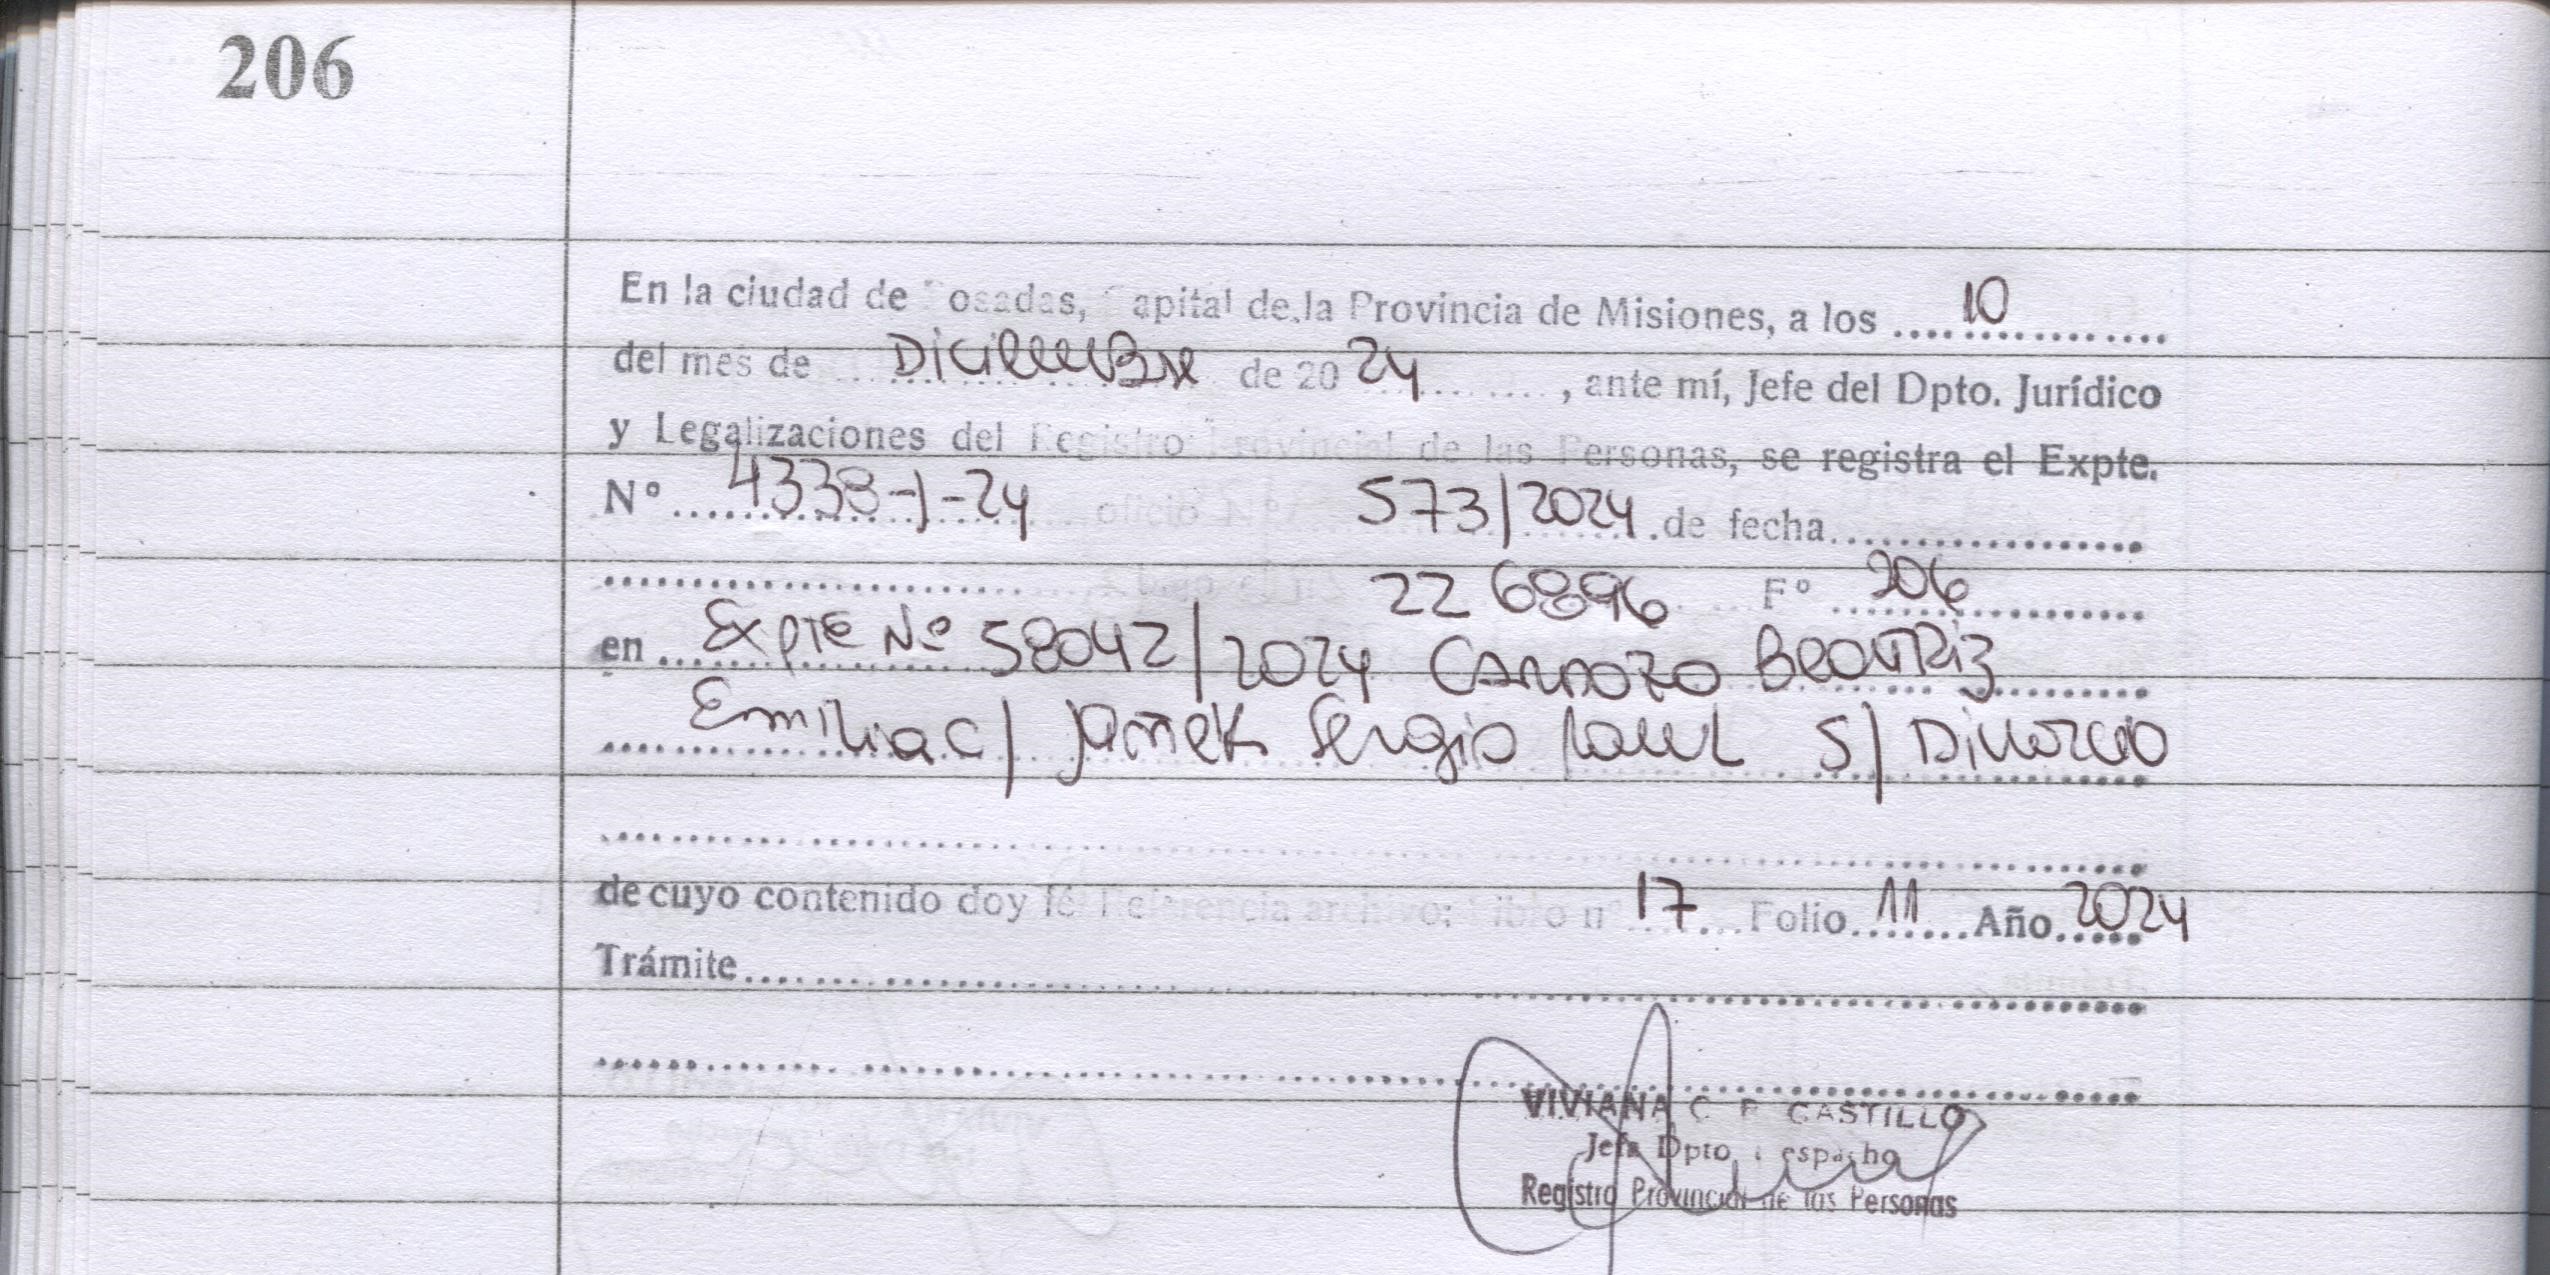 206
En la ciudad de Posadas, Capital de la Provincia de Misiones, a los 10
del mes de Diciembre de 2024, ante mí, Jefe del Dpto. Jurídico
y Legalizaciones del Registro Provincial de las Personas, se registra el Expte.
Nº 4338-J-24 oficio Nº 573/2024 de fecha
226896 Fº 206
en Expte Nº 58042/2024 CARDOZO BEATRIZ
Emilia c/ Jañek Sergio Raul S/ Divorcio
de cuyo contenido doy fé: Referencia archivo: Libro nº 17 Folio 11 Año 2024
Trámite
VIVIANA C. CASTILLO
Jefa Dpto. Despacho
Registro Provincial de las Personas